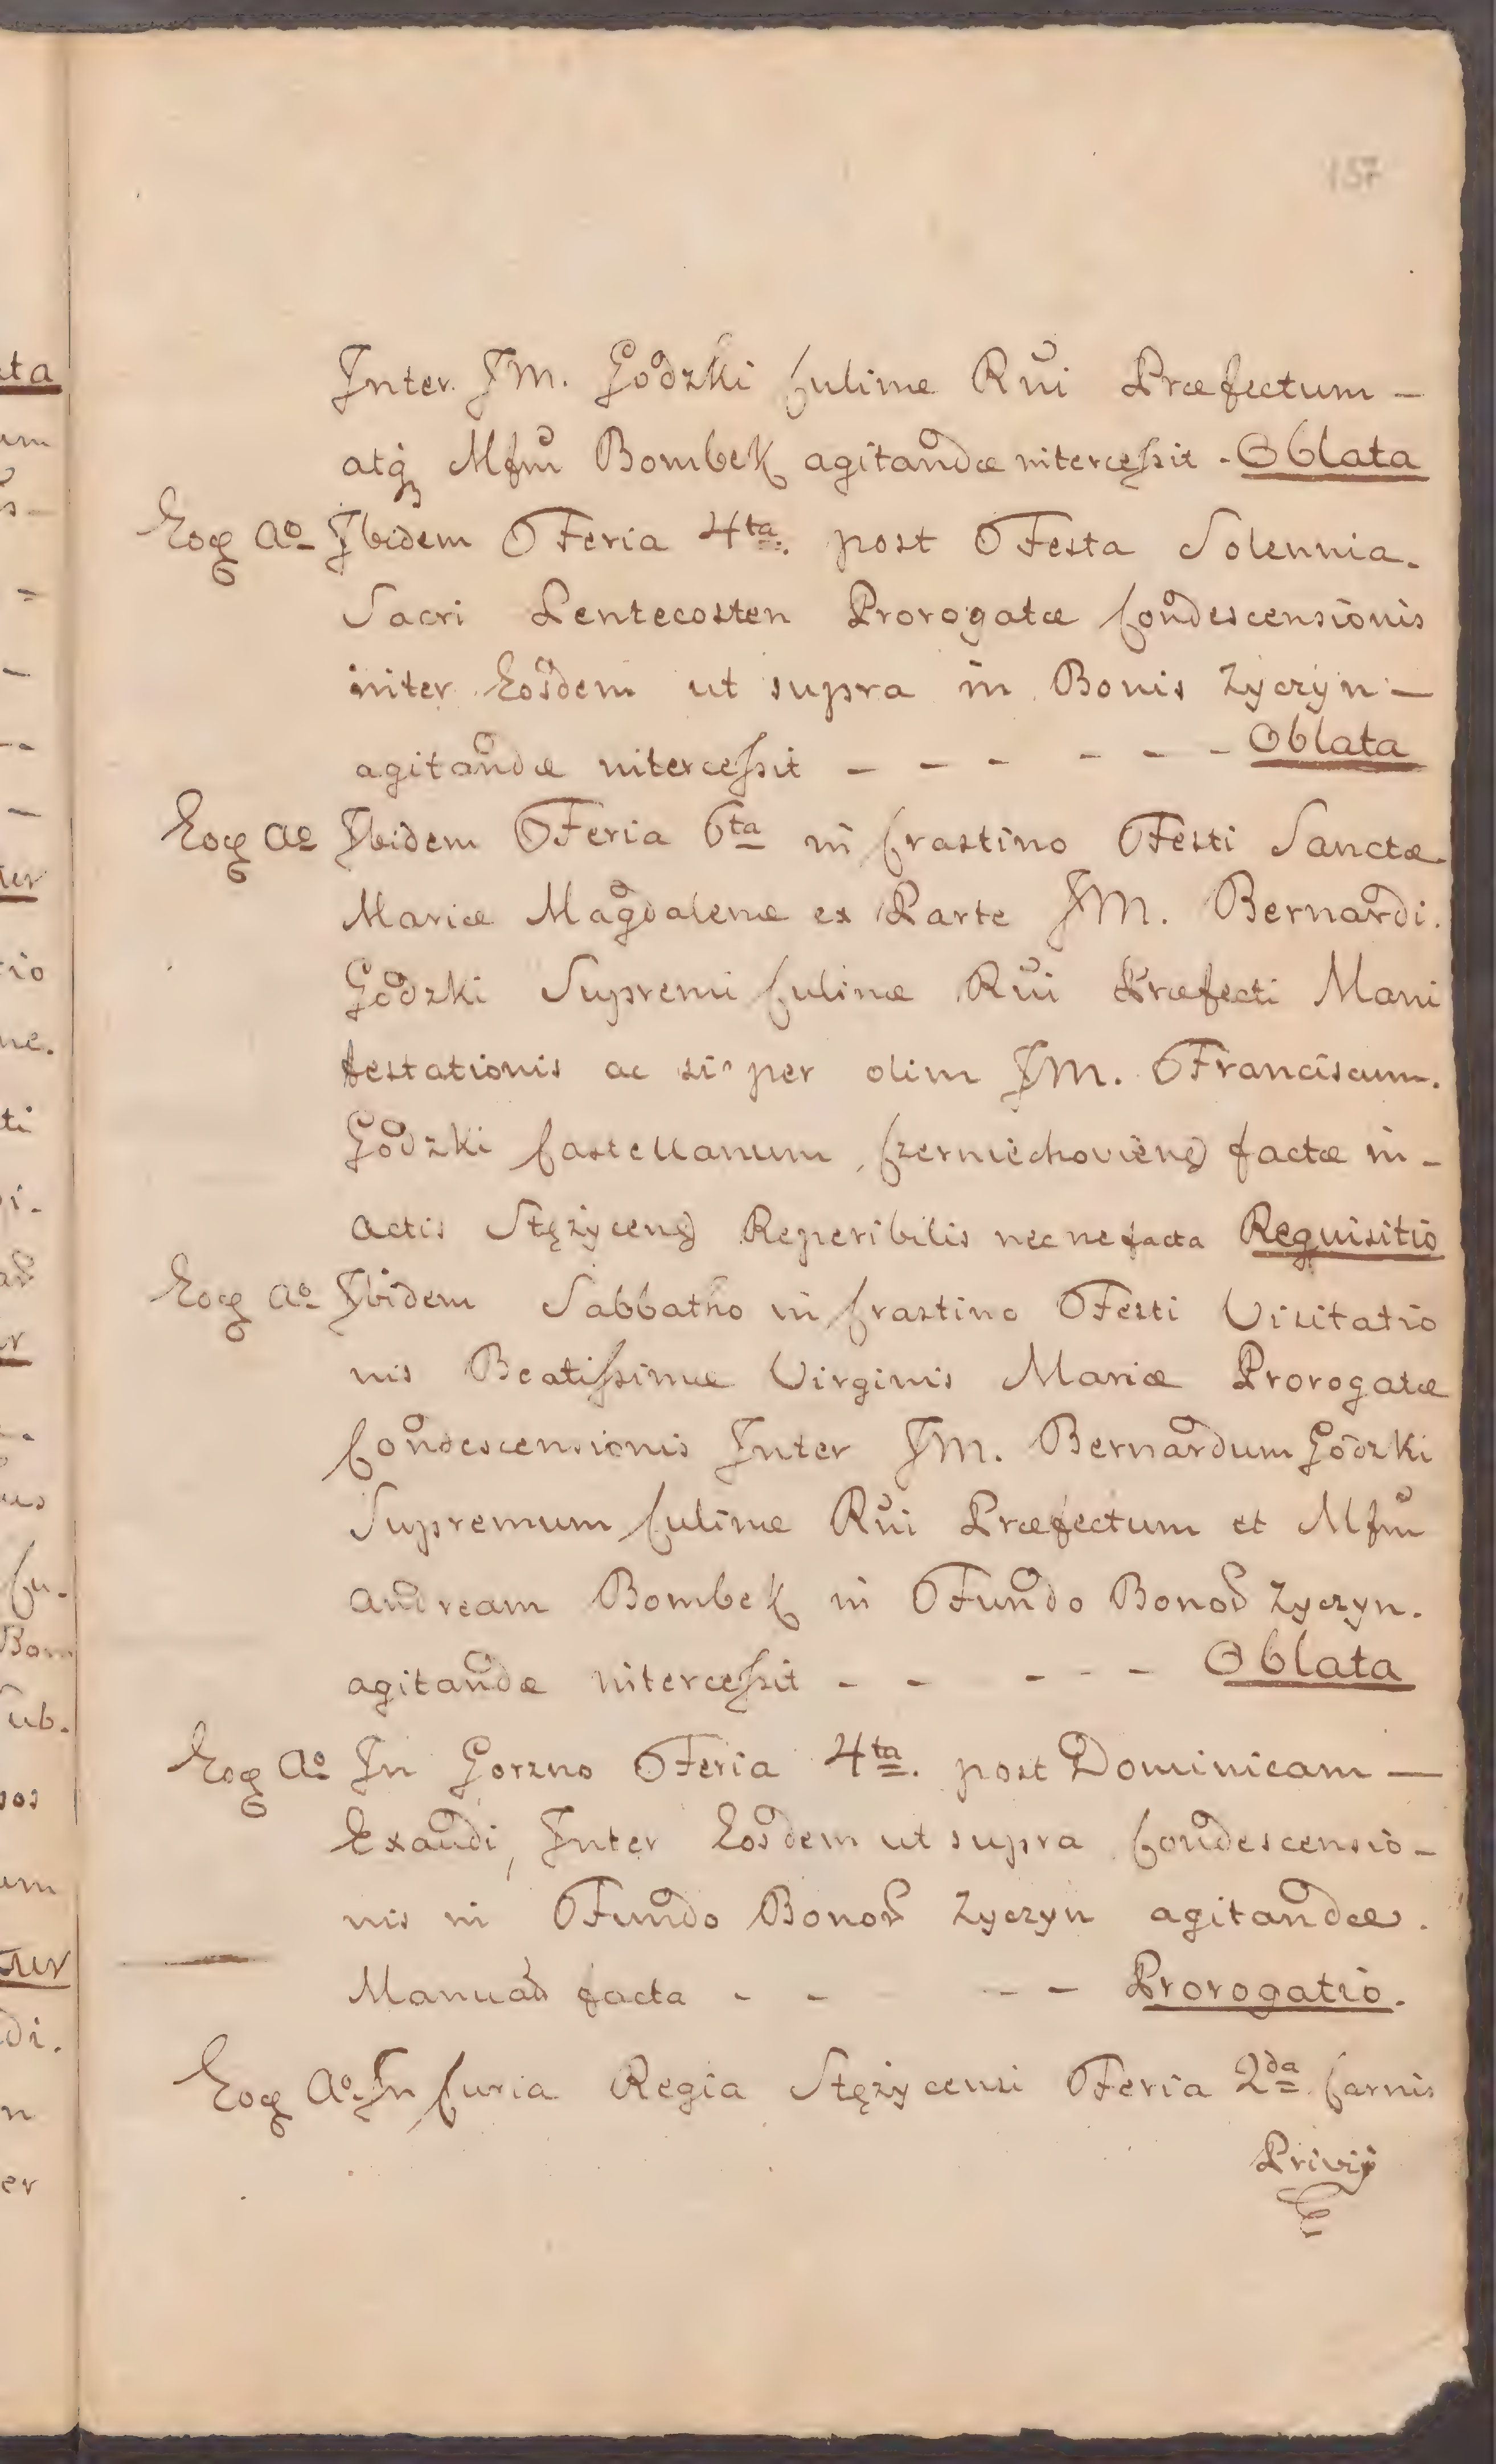 157
Inter JM. Godzki Culinæ Rni Præfectum —
atq Mfm Bombek agitandæ intercessit - Oblata
Eoq Ao Ibidem Feria 4ta. post Festa Solennia.
Sacri Pentecosten Prorogatæ Condescensionis
inter Eosdem ut supra in Bonis Zyczyn —
agitandæ intercessit — — — — — — Oblata
Eoq Ao Ibidem Feria 6ta in Crastino Festi Sanctæ
Mariæ Magdalenæ ex Parte JM. Bernardi.
Godzki Supremi Culinæ Rni Præfecti Mani
festationis ac si per olim JM. Franciscum.
Godzki Castellanum Czerniechovień factæ in —
Actis Stężyceń Reperibilis nec ne facta Requisitio
Eoq Ao Ibidem Sabbatho in Crastino Festi Visitatio
nis Beatissimæ Virginis Mariæ Prorogatæ
Condescensionis Inter JM. Bernardum Godzki
Supremum Culinæ Rni Præfectum et Mfm
Andream Bombek in Fundo Bonor Zyczyn.
agitandæ intercessit - - - - - Oblata
Eoq Ao In Gorzno Feria 4ta. post Dominicam —
Exaudi, Inter Eosdem ut supra Condescensio —
nis in Fundo Bonor Zyczyn agitandæ.
facta - - - — Prorogatio.
Eoq Ao In Curia Regia Stężycensi Feria 2da Carnis
Privij